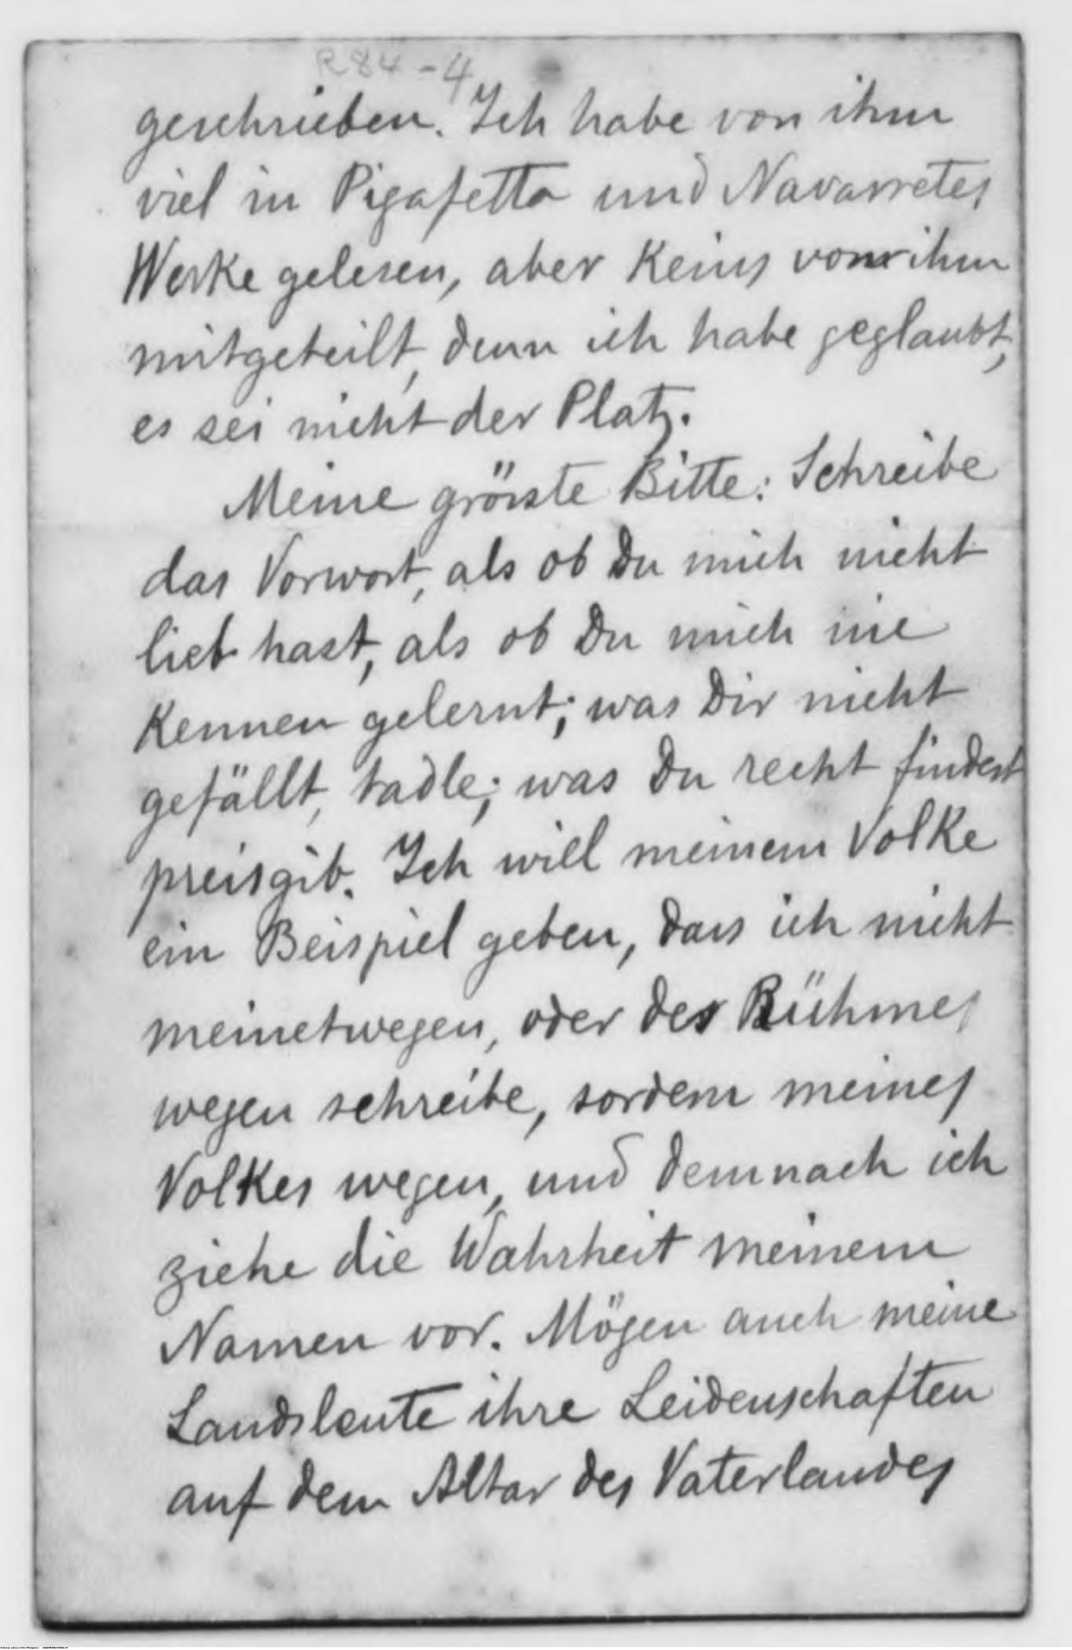 R84-4
geschrieben. Ich habe von ihm
viel in Pigafetta und Navarretes
Werke gelesen, aber keins von ihm
mitgeteilt, denn ich habe geglaubt,
es sei nicht der Platz.
Meine grösste Bitte: Schreibe
das Vorwort, als ob Du mich nicht
lieb hast, als ob Du mich nie
kennen gelernt; was Dir nicht
gefällt, tadle; was Du recht findest
preisgib. Ich will meinem Volke
ein Beispiel geben, dass ich nicht
meinetwegen, oder des Rühmes
wegen schreibe, sordern meines
Volkes wegen, und demnach ich
ziehe die Wahrheit meinem
Namen vor. Mögen auch meine
Landsleute ihre Leidenschaften
auf dem Altar des Vaterlandes